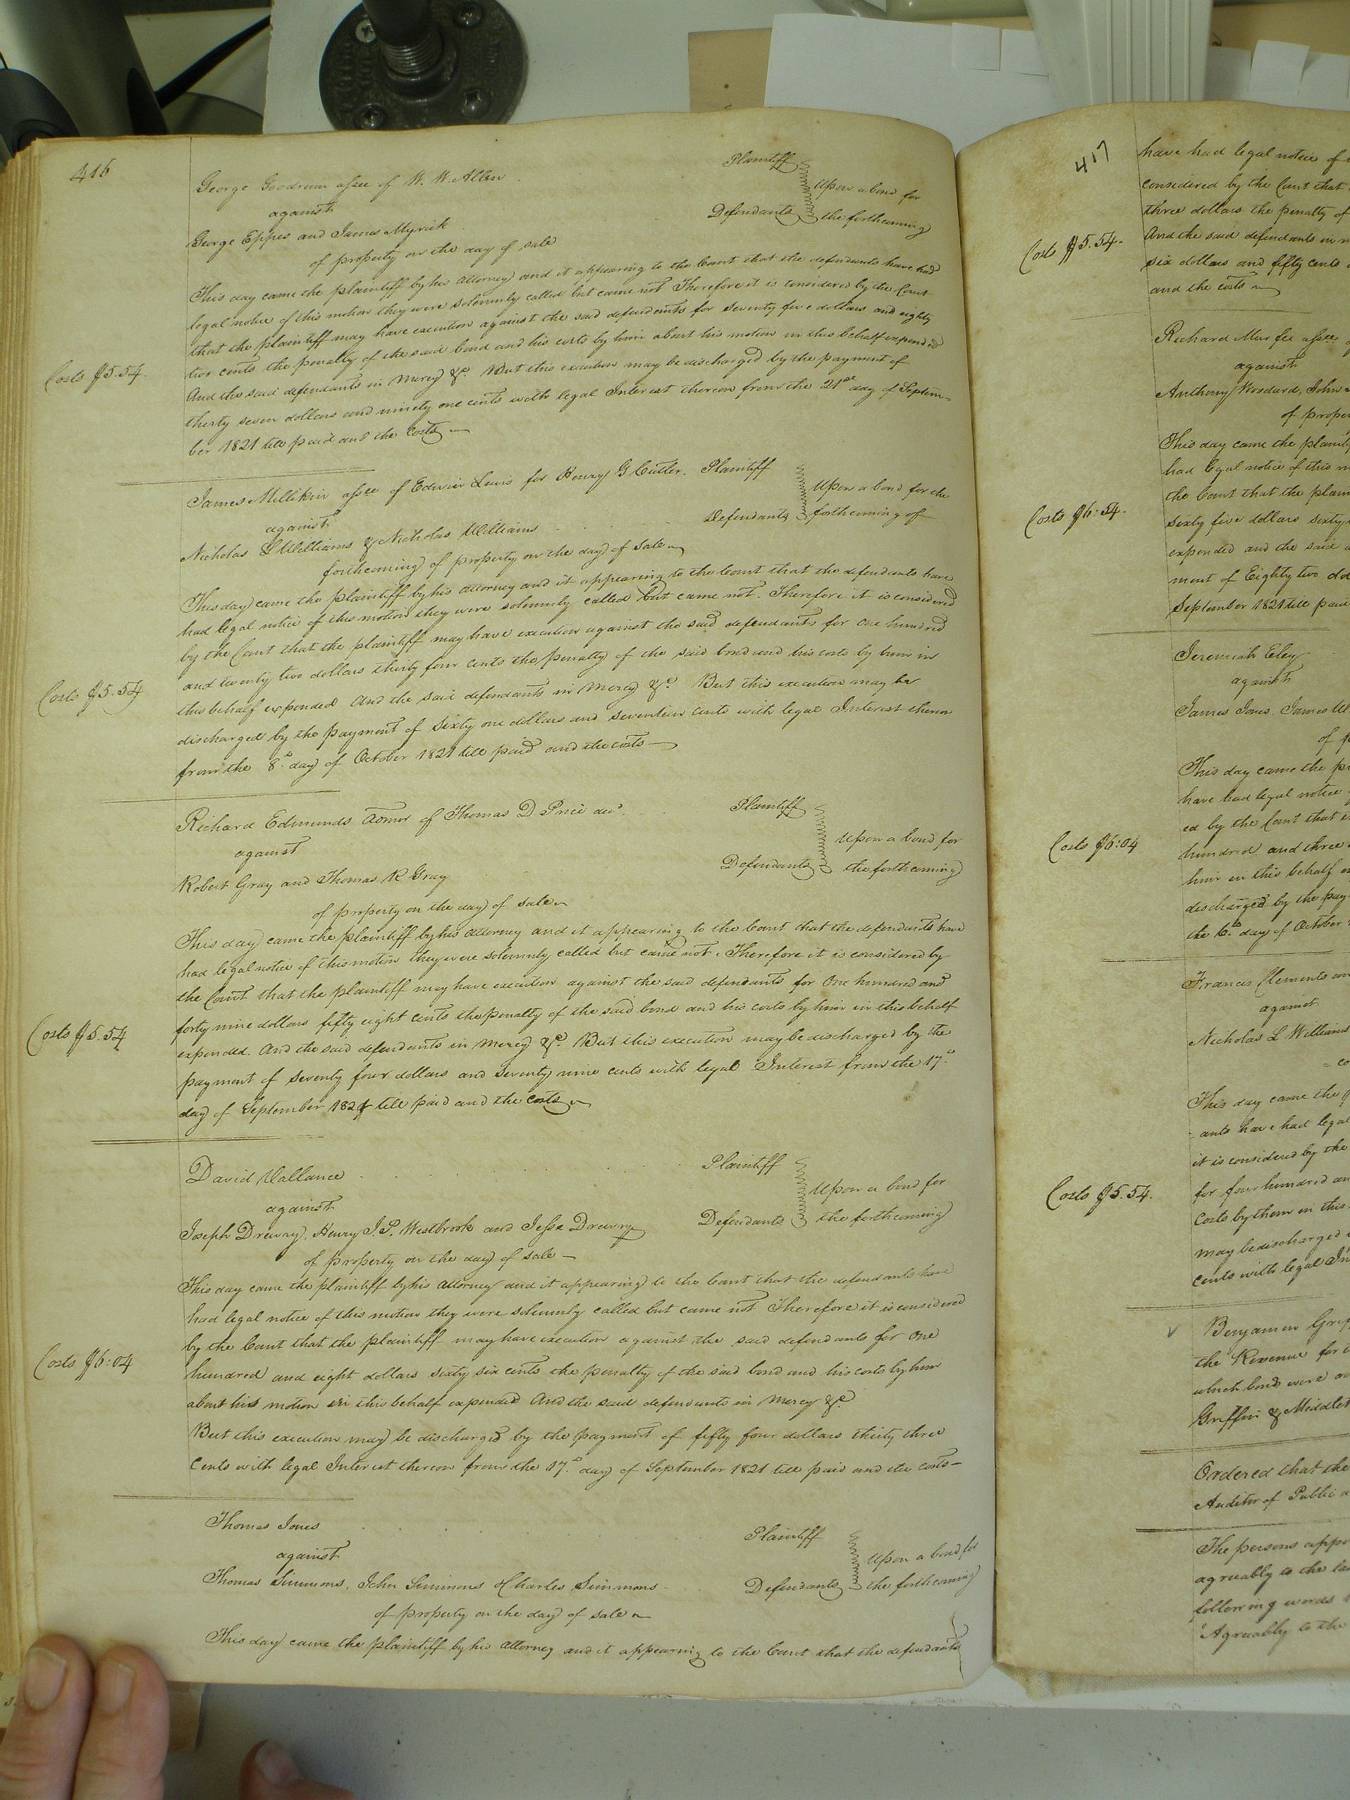 416
George Goodrum assee of W. W. Allen Plaintiff
against Upon a bond for
George Eppes and James Myrick Defendants the forthcoming
of property on the day of sale
This day came the plaintiff by his attorney and it appearing to the Court that the defendants have had
legal notice of this motion they were solemnly called but came not Therefore it is considered by the Court
that the plaintiff may have execution against the said defendants for seventy five dollars and eighty
two cents the penalty of the said bond and his costs by him about his motion in this behalf expended
Costs $5.54 And the said defendants in mercy &c. But this execution may be discharged by the payment of
thirty seven dollars and ninety one cents with legal Interest thereon from the 21st day of Septem
ber 1821 till paid and the costs
James Millikin assee of Edwin Lewis for Henry G Cutler. Plaintiff
against Upon a bond for the
Nicholas L Williams & Nicholas Williams Defendants forthcoming of
forthcoming of property on the day of sale
This day came the plaintiff by his attorney and it appearing to the Court that the defendants have
had legal notice of this motion they were solemnly called but came not. Therefore it is considered
by the Court that the plaintiff may have execution against the said defendants for one hundred
and twenty two dollars thirty four cents the penalty of the said bond and his costs by him in
Costs $5.54 this behalf expended And the said defendants in mercy &c. But this execution may be
discharged by the payment of sixty one dollars and seventeen cents with legal Interest thereon
from the 8th day of October 1821 till paid and the costs
Richard Edmunds admor of Thomas D Price decd. Plaintiff
against Upon a bond for
Robert Gray and Thomas R Gray Defendants the forthcoming
of property on the day of sale
This day came the plaintiff by his attorney and it appearing to the Court that the defendants have
had legal notice of this motion they were solemnly called but came not. Therefore it is considered by
the Court that the plaintiff may have execution against the said defendants for One hundred and
forty nine dollars fifty eight cents the penalty of the said bond and his costs by him in this behalf
Costs $5.54 expended. And the said defendants in mercy &c. But this execution may be discharged by the
payment of seventy four dollars and seventy nine cents with legal Interest from the 17th
day of September 1821 till paid and the costs
David Vallance Plaintiff
against Upon a bond for
Joseph Drewry, Henry J. P. Westbrook and Jesse Drewry Defendants the forthcoming
of property on the day of sale
This day came the plaintiff by his attorney and it appearing to the Court that the defendants have
had legal notice of this motion they were solemnly called but came not Therefore it is considered
by the Court that the plaintiff may have execution against the said defendants for One
Costs $6:04 hundred and eight dollars sixty six cents the penalty of the said bond and his costs by him
about his motion in this behalf expended And the said defendants in mercy &c
But this execution may be discharged by the payment of fifty four dollars thirty three
Cents with legal Interest thereon from the 17th day of September 1821 till paid and the costs
Thomas Jones Plaintiff
against Upon a bond for
Thomas Simmons, John Simmons & Charles Simmons Defendants the forthcoming
of property on the day of sale
This day came the plaintiff by his attorney and it appearing to the Court that the defendants
417
have had legal notice of
considered by the Court that
three dollars the penalty of
Costs $5.54 And the said defendants in
six dollars and fifty cents
and the costs
Richard Murfee assee
against
Anthony Woodard, John
of proper
This day came the plaint
had legal notice of this
the Court that the plain
Costs $6:54 sixty five dollars sixty
expended and the said
ment of Eighty two do
September 1821 till paid
Jeremiah Eley
against
James Jones James W
of p
This day came the p
have had legal notice
ed by the Court that
Costs $6:04 hundred and three
him in this behalf
discharged by the pay
the 6th day of October
Francis Clements
against
Nicholas L Williams
This day came the
ants have had legal
it is considered by the
Costs $5.54. for four hundred an
Costs by them in this
may be discharged
cents with legal In
Benjamin Grif
the Revenue for
which bonds were
Griffin & Middlet
Ordered that the
Auditor of Public
The persons appo
agreeably to the la
following words
"Agreeably to the